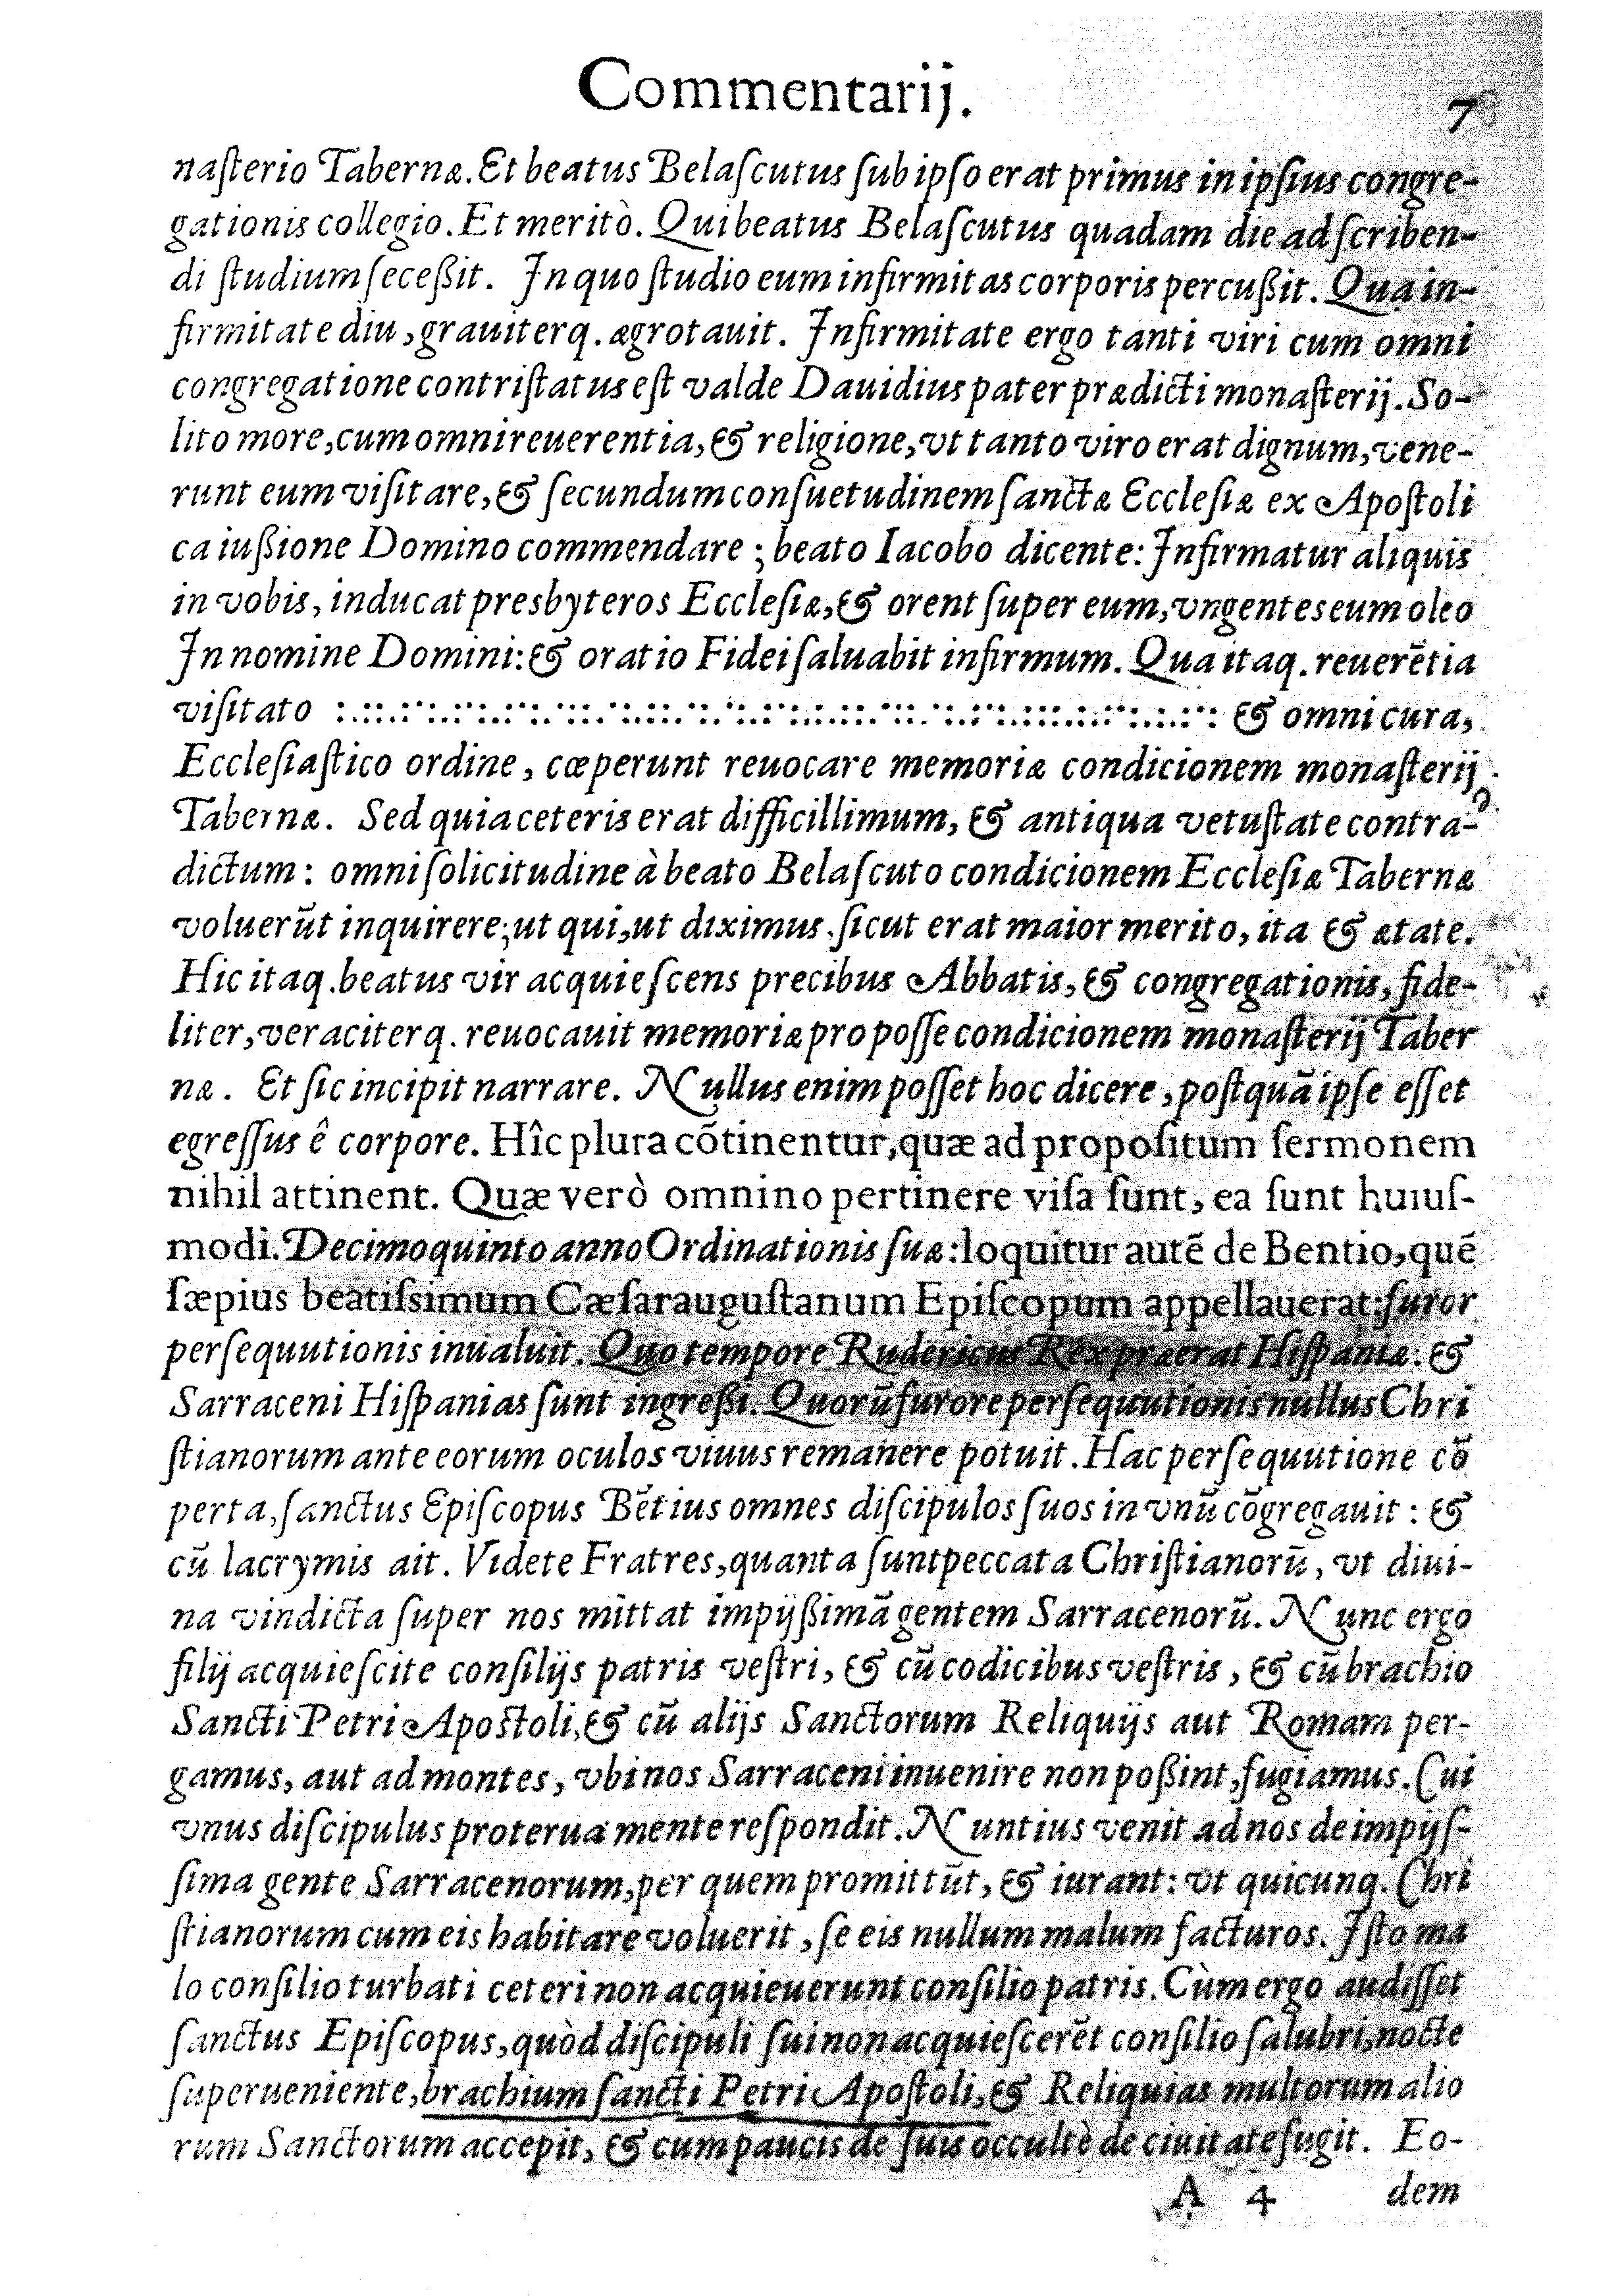 Commentarij.
7
naſterio Tabernæ. Et beatus Belaſcutus ſub ipſo erat primus in ipſius congre-
gationis collegio. Et meritò. Qui beatus Belaſcutus quadam die ad ſcriben-
di ſtudium ſeceßit. In quo ſtudio eum infirmitas corporis percußit. Qua in-
firmitate diu, grauiterq. ægrotauit. Infirmitate ergo tanti viri cum omni
congregatione contriſtatus eſt valde Dauidius pater prædicti monaſterij. So-
lito more, cum omni reuerentia, & religione, vt tanto viro erat dignum, vene-
runt eum viſitare, & ſecundum conſuetudinem ſanctæ Eccleſiæ ex Apoſtoli
ca iußione Domino commendare; beato Iacobo dicente: Infirmatur aliquis
in vobis, inducat presbyteros Eccleſiæ, & orent ſuper eum, vngentes eum oleo
In nomine Domini: & oratio Fidei ſaluabit infirmum. Qua itaq. reuerẽtia
viſitato :.::.:·:.:·:.:·:.·::.·:.::.·:.·:.:·:.:.::.·::.·:.:·:.:::.:.:·:.:.:·: & omni cura,
Eccleſiaſtico ordine, cœperunt reuocare memoriæ condicionem monaſterij
Tabernæ. Sed quia ceteris erat difficillimum, & antiqua vetuſtate contra-
dictum: omni ſolicitudine à beato Belaſcuto condicionem Eccleſiæ Tabernæ
voluerũt inquirere; ut qui, ut diximus. ſicut erat maior merito, ita & ætate.
Hic itaq. beatus vir acquieſcens precibus Abbatis, & congregationis, fide-
liter, veraciterq. reuocauit memoriæ pro poſſe condicionem monaſterij Taber
næ. Et ſic incipit narrare. Nullus enim poſſet hoc dicere, poſtquã ipſe eſſet
egreſſus ê corpore. Hîc plura cõtinentur, quæ ad propoſitum ſermonem
nihil attinent. Quæ verò omnino pertinere viſa ſunt, ea ſunt huiuſ-
modi. Decimoquinto anno Ordinationis ſuæ: loquitur autẽ de Bentio, quẽ
ſæpius beatiſsimum Cæſarauguſtanum Epiſcopum appellauerat: furor
perſequutionis inualuit. Quo tempore Rudericus Rex præerat Hiſpaniæ. &
Sarraceni Hiſpanias ſunt ingreßi. Quorũ furore perſequutionis nullus Chri
ſtianorum ante eorum oculos viuus remanere potuit. Hac perſequutione cõ
perta, ſanctus Epiſcopus Bẽtius omnes diſcipulos ſuos in vnũ cõgregauit: &
cũ lacrymis ait. Videte Fratres, quanta ſunt peccata Chriſtianorũ, vt diui-
na vindicta ſuper nos mittat impijßimã gentem Sarracenorũ. Nunc ergo
filij acquieſcite conſilijs patris veſtri, & cũ codicibus veſtris, & cũ brachio
Sancti Petri Apoſtoli, & cũ alijs Sanctorum Reliquijs aut Romam per-
gamus, aut ad montes, vbi nos Sarraceni inuenire non poßint, fugiamus. Cui
vnus diſcipulus proterua mente reſpondit. Nuntius venit ad nos de impijſ-
ſima gente Sarracenorum, per quem promittũt, & iurant: vt quicunq. Chri
ſtianorum cum eis habitare voluerit, ſe eis nullum malum facturos. Iſto ma
lo conſilio turbati ceteri non acquieuerunt conſilio patris. Cùm ergo audiſſet
ſanctus Epiſcopus, quòd diſcipuli ſui non acquieſcerẽt conſilio ſalubri, nocte
ſuperueniente, brachium ſancti Petri Apoſtoli, & Reliquias multorum alio
rum Sanctorum accepit, & cum paucis de ſuis occultè de ciuitate fugit. Eo-
A 4 dem